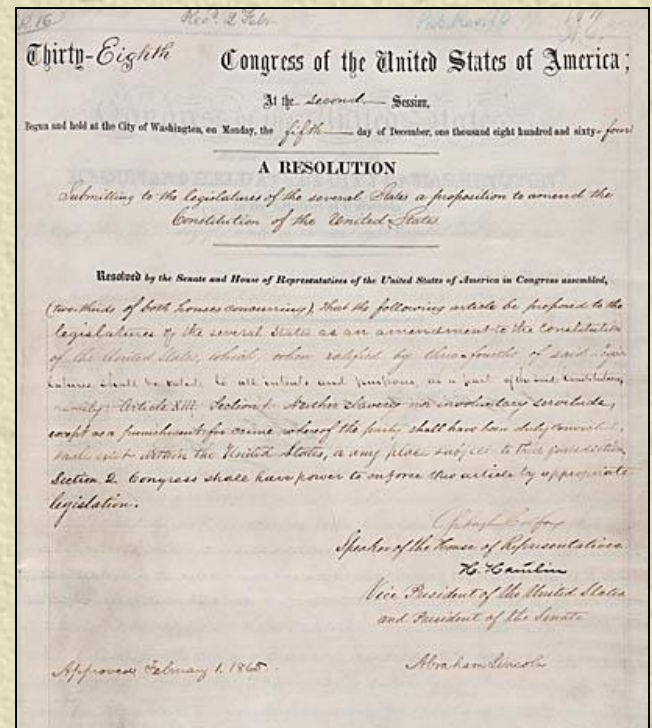 Rec'd. 2 Feby
Thirty-Eighth Congress of the United States of America;
At the Second Session,
Begun and held at the City of Washington, on Monday, the fifth day of December, one thousand eight hundred and sixty-four
A RESOLUTION
Submitting to the legislatures of the several States a proposition to amend the
Constitution of the United States.
Resolved by the Senate and House of Representatives of the United States of America in Congress assembled,
(two-thirds of both houses concurring), that the following article be proposed to the
legislatures of the several States as an amendment to the Constitution
of the United States, which, when ratified by three-fourths of said
latures shall be valid, to all intents and purposes, as a part of the said Constitution,
namely: Article XIII. Section 1. Neither slavery nor involuntary servitude,
except as a punishment for crime whereof the party shall have been duly convicted,
shall exist within the United States, or any place subject to their jurisdiction.
Section 2. Congress shall have power to enforce this article by appropriate
legislation.
Schuyler Colfax
Speaker of the House of Representatives
H. Hamlin
Vice President of the United States
and President of the Senate
Approved, February 1. 1865. Abraham Lincoln